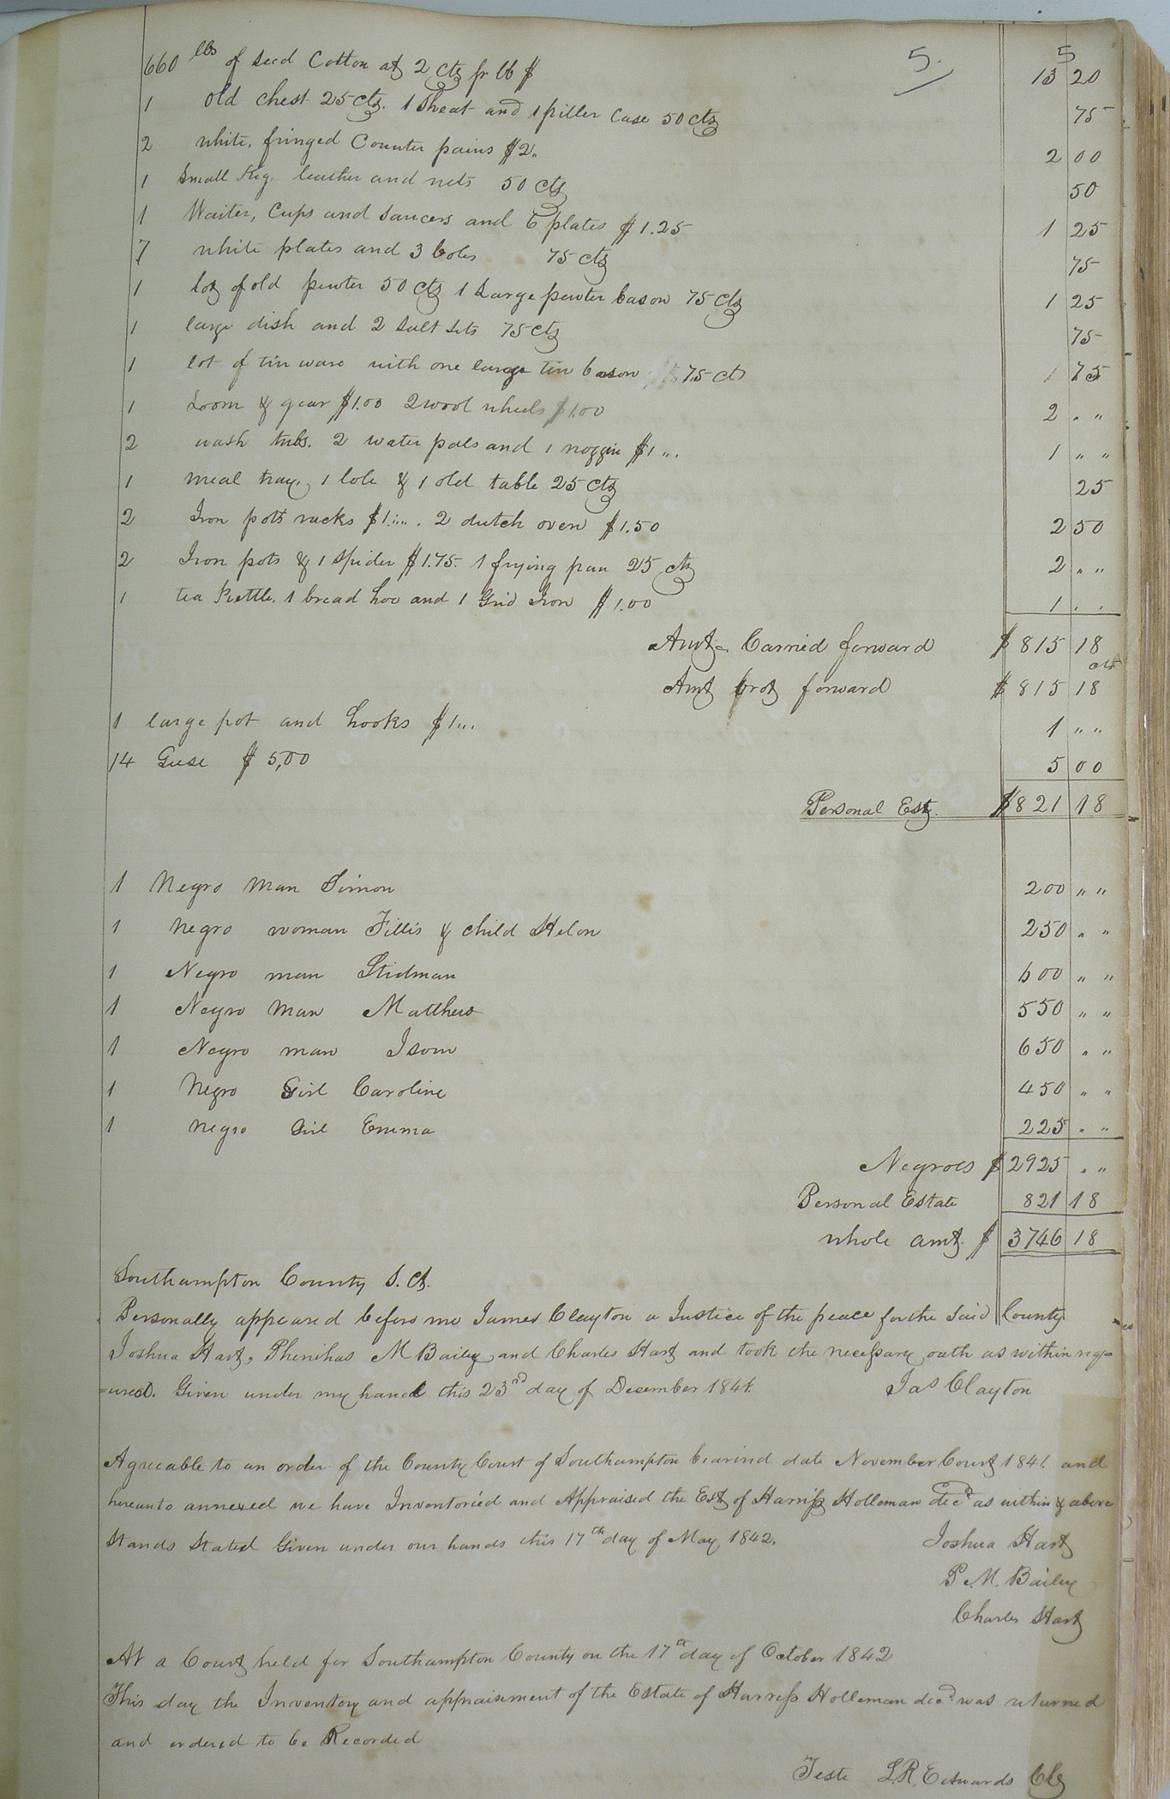 5. 5
660 lbs of seed Cotton at 2 cts pr lb $ 13 20
1 old chest 25 cts. 1 Sheat and 1 piller Case 50 cts 75
2 white, fringed Counter pains $2. 2 00
1 Small Keg leather and nets 50 cts 50
1 Waiter, Cups and Saucers and 6 plates $1.25 1 25
7 white plates and 3 boles 75 cts 75
1 lot of old pewter 50 cts 1 Large pewter bason 75 cts 1 25
1 large dish and 2 Salt Sets 75 cts 75
1 lot of tin ware with one large tin bason 75 cts 75
1 Loom & gear $1.00 2 wool wheels $1.00 2 " "
2 wash tubs. 2 water pales and 1 noggin $1 ". 1 " "
1 meal tray, 1 bole & 1 old table 25 cts 25
2 Iron pott racks $1.... 2 dutch oven $1.50 2 50
2 Iron pots & 1 Spider $1.75. 1 frying pan 25 cts 2 " "
1 tea Kettle. 1 bread hoe and 1 Grid Iron $1.00 1 . .
Amt. Carried forward $815 18
Amt brot forward $815 18 cts
1 large pot and hooks $1... 1 " "
14 Guse $5,00 5 00
Personal Est. $821 18
1 Negro Man Simon 200 " "
1 Negro woman Fillis & child Helen 250 " "
1 Negro man Stidman 600 " "
1 Negro Man Matthew 550 " "
1 Negro man Isom 650 " "
1 Negro Girl Caroline 450 " "
1 Negro Girl Emma 225 " "
Negroes $2925 " "
Personal Estate 821 18
whole amt. $3746 18
Southampton County S. Ct.
Personally appeared before me James Clayton a Justice of the peace for the Said County
Joshua Hart, Phenihas M Bailey and Charles Hart and took the necessary oath as within req=
=uired. Given under my hand this 23rd day of December 1841. Jas Clayton
Agreeable to an order of the County Court of Southampton bearind date November Court 1841. and
hereunto annexed we have Inventoried and Appraised the Est of Harriss Holleman decd as within & above
Stands Stated Given under our hands this 17th day of May 1842. Joshua Hart
P. M. Bailey
Charles Hart
At a Court held for Southampton County on the 17th day of October 1842
This day the Inventory and appraisement of the Estate of Harriss Holleman decd was returned
and ordered to be Recorded
Teste L. R. Edwards Clk